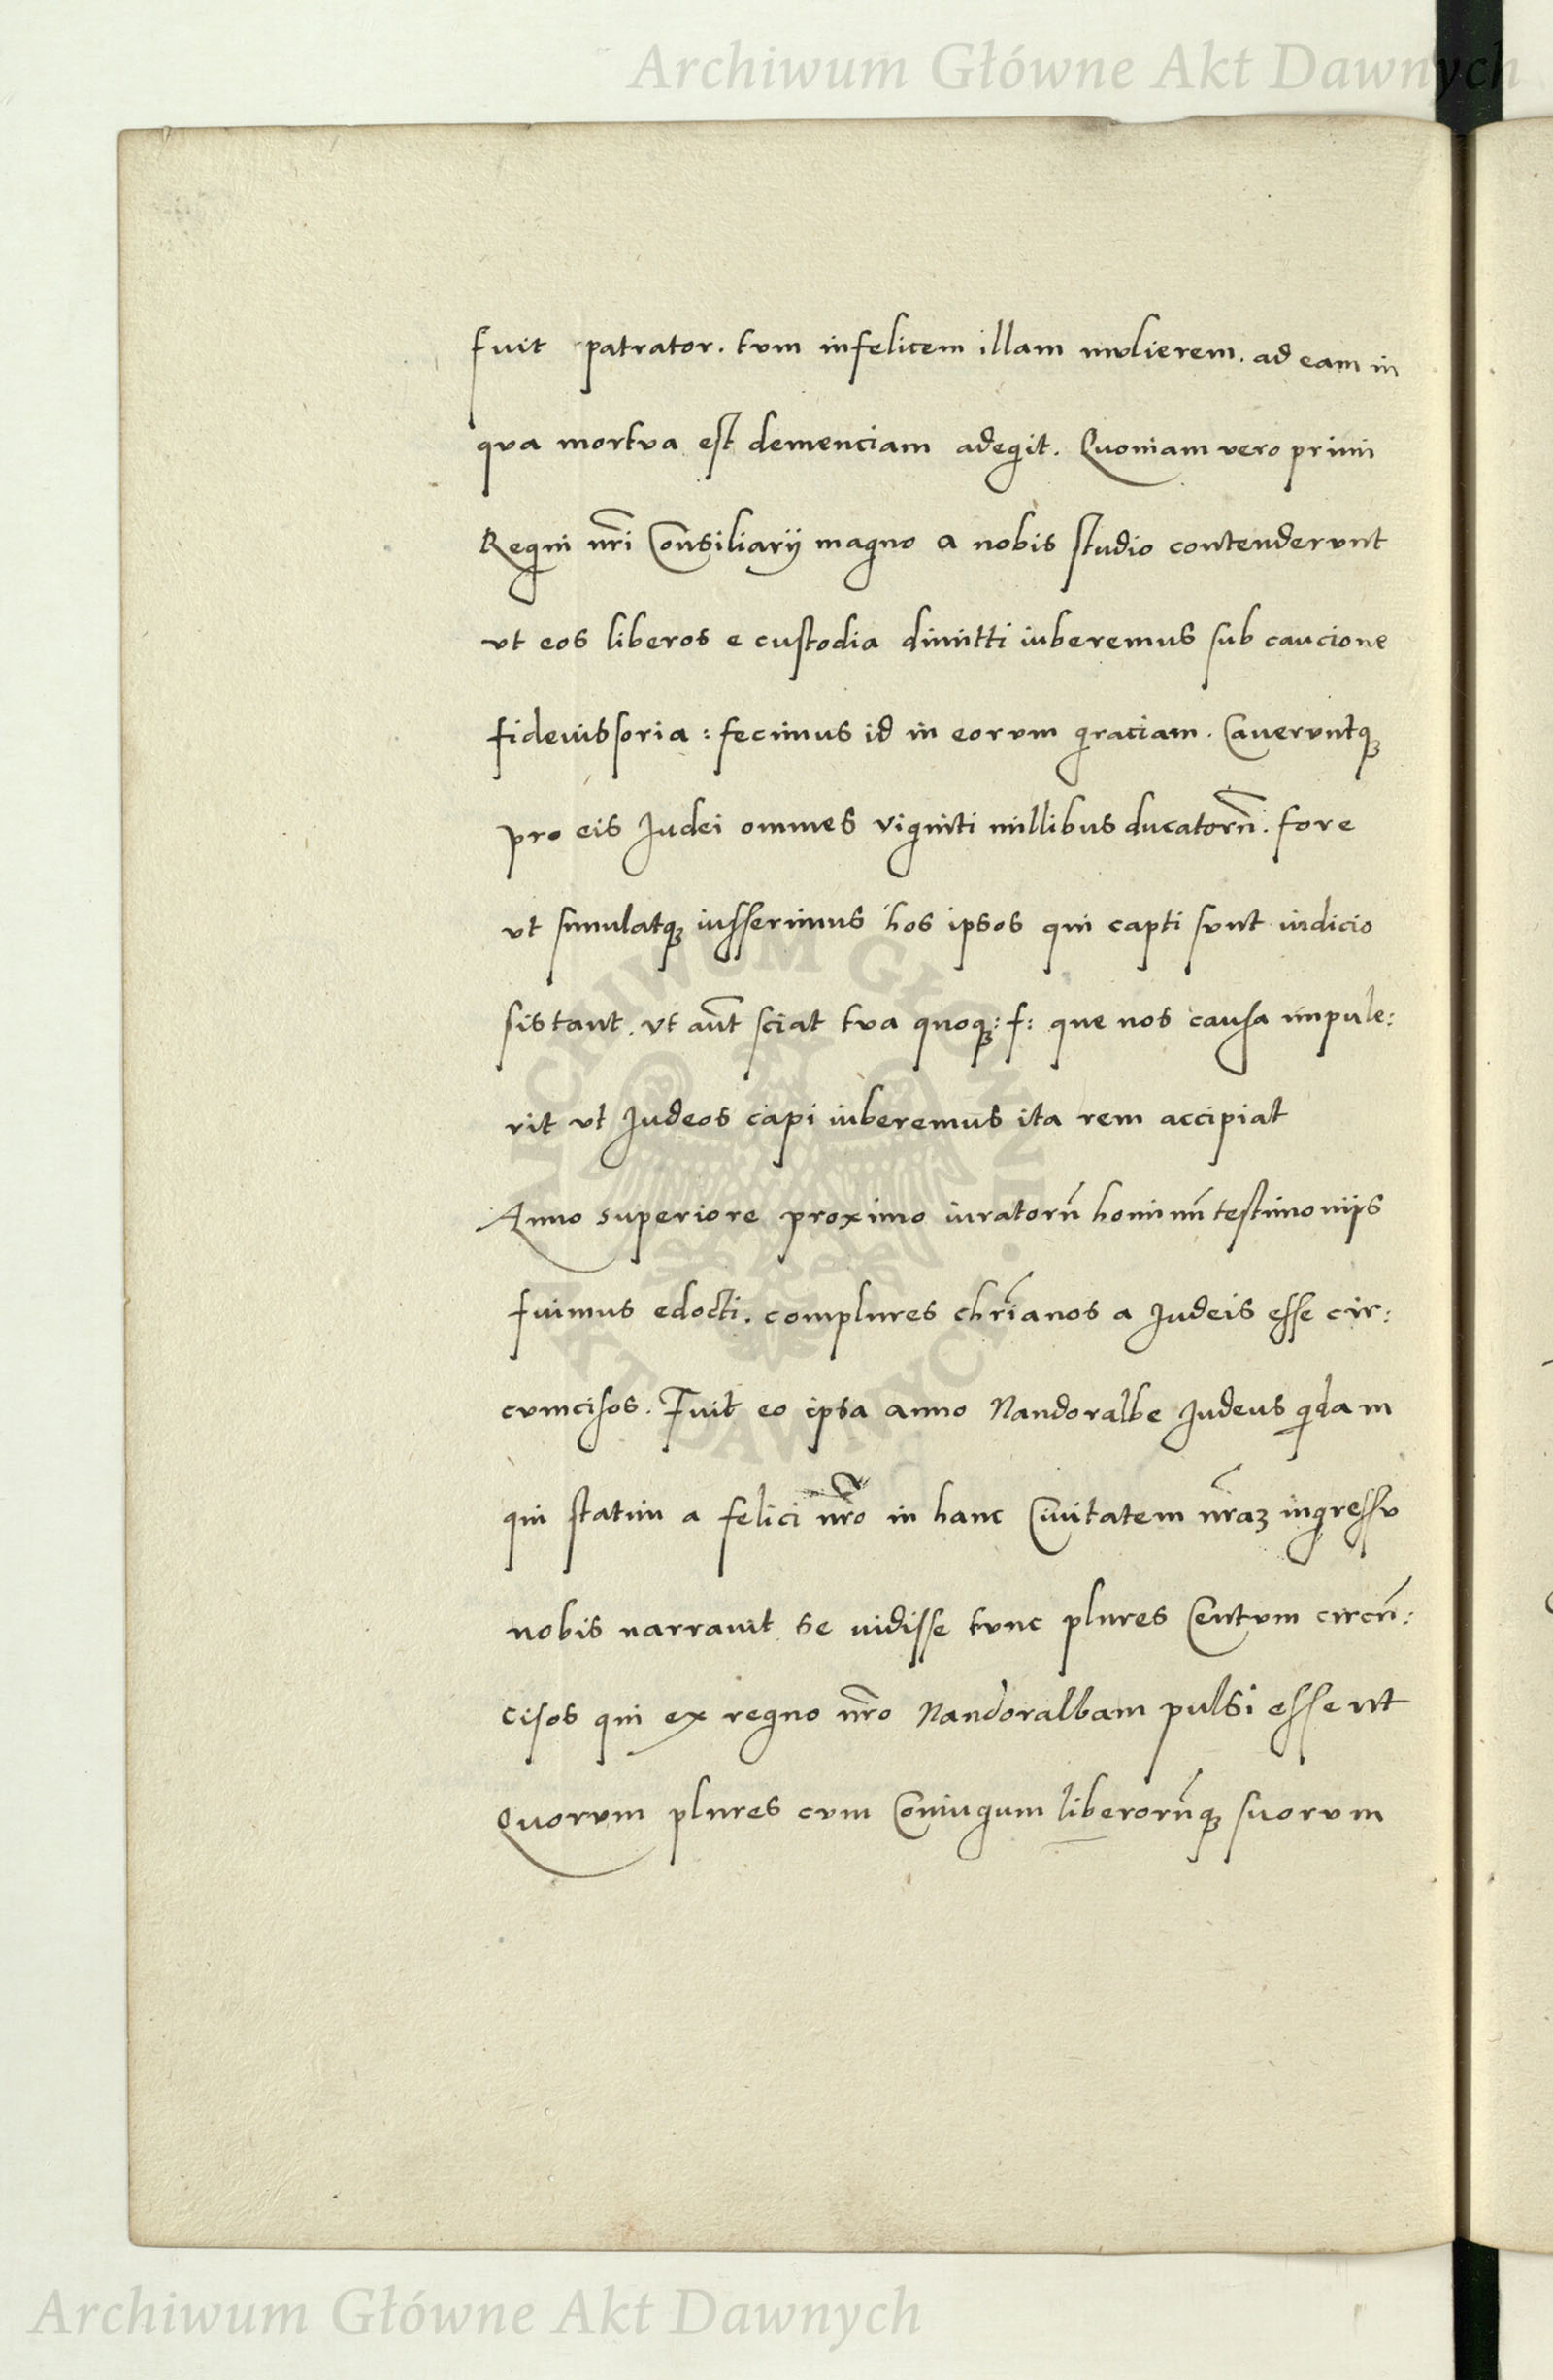 Archiwum Główne Akt Dawnych
fuit patrator. tvm infelicem illam mvlierem. ad eam in
qva mortva est demenciam adegit. Quoniam vero primi
Regni nr̃i Consiliarij magno a nobis studio contendervnt
vt eos liberos e custodia dimitti iuberemus sub caucione
fideiussoria : fecimus id in eorvm graciam. Cavervntq₃
pro eis Judei omnes viginti millibus ducatorũ. fore
vt simulatq₃ iusserimus hos ipsos qui capti svnt iudicio
sistant. vt aũt sciat tva quoq₃: f: que nos causa impule:
rit vt Judeos capi iuberemus ita rem accipiat
Anno superiore proximo iuratorũ hominũ testimoniis
fuimus edocti. complures chr̃ianos a Judeis esse cir:
cvmcisos. Fuit eo ipsa anno Nandoralbe Judeus qdam
qui statim a felici nr̃o in hanc Civitatem nr̃aʒ ingressv
nobis narravit se vidisse tvnc plures Centvm circũ:
cisos qui ex regno nr̃o Nandoralbam pulsi essent
Quorvm plures cvm Coniugum liberorũq₃ suorvm
ARCHIWUM GŁÓWNE AKT DAWNYCH
Archiwum Główne Akt Dawnych